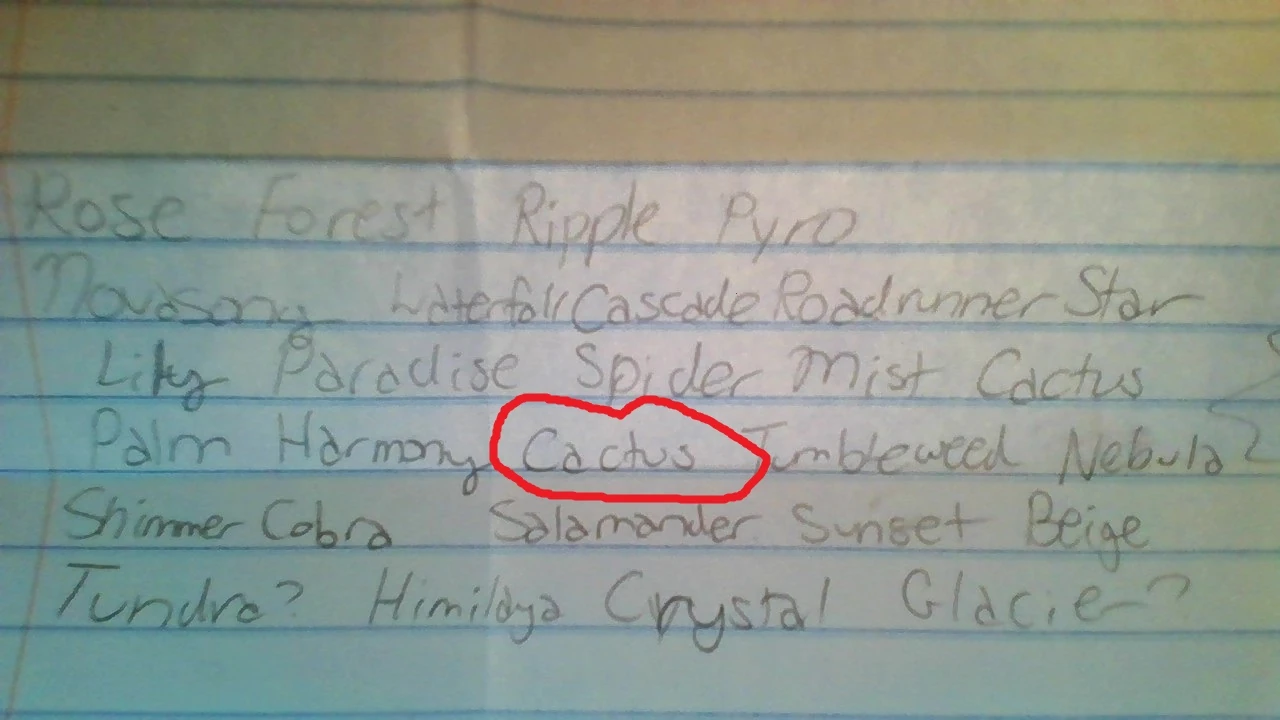 Rose Forest Ripple Pyro
Novasong Waterfall Cascade Roadrunner Star
Lily Paradise Spider Mist Cactus
Palm Harmony Cactus Tumbleweed Nebula?
Shimmer Cobra Salamander Sunset Beige
Tundra? Himilaya Crystal Glacier?